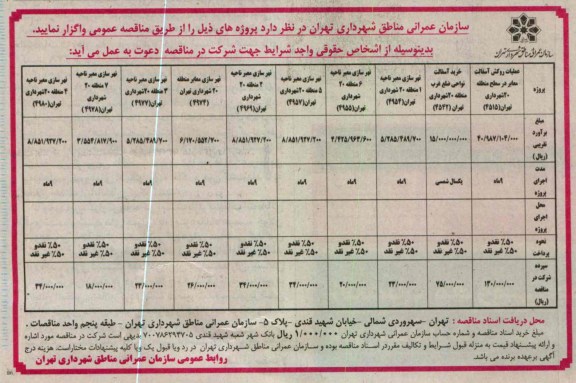 سازمان عمرانی مناطق شهرداری تهران در نظر دارد پروژه های ذیل را از طریق مناقصه عمومی واگزار نمایید.
بدینوسیله از اشخاص حقوقی واجد شرایط جهت شرکت در مناقصه دعوت به عمل می آید:
پروژه
عملیات روکش آسفالت معابر در سطح منطقه ۲۰شهرداری تهران(۴۵۱۵)
خرید آسفالت نواحی ضلع غرب منطقه ۲۰ شهرداری تهران(۴۵۳۲)
نهر سازی معبر ناحیه
۲ منطقه ۲۰شهرداری
نهر سازی معبر ناحیه
۶ منطقه ۲۰ شهرداری
تهران(۴۹۵۵)
نهر سازی معبر ناحیه
۵ منطقه ۲۰شهرداری
تهران(۴۹۵۷)
نهر سازی معبر ناحیه
شهرداری
تهران(۴۹۶۹)
نهر سازی معبر منطقه
۲۰ شهرداری تهران
(۴۹۷۴)
نهر سازی معبر ناحیه
شهرداری
تهران(۴۹۷۷)
نهر سازی معبر ناحیه
۷ منطقه ۲۰
شهرداری
تهران(۴۹۷۸)
نهر سازی معبر ناحیه
۴ منطقه ۲۰شهرداری
تهران(۴۹۸۰)
مبلغ برآورد تقریبی (ریال)
۴۰/۹۸۷/۱۰۴/۰۰۰
۱۵/۰۰۰/۰۰۰/۰۰۰
۵/۲۸۵/۴۸۹/۷۰۰
۴/۴۲۵/۹۶۳/۶۰۰
۸/۸۵۱/۹۲۷/۲۰۰
۸/۸۵۱/۹۲۷/۲۰۰
۶/۱۷۰/۵۵۲/۷۰۰
۵/۲۸۵/۴۸۹/۷۰۰
۳/۵۵۴/۸۱۷/۹۰۰
۸/۸۵۱/۹۲۷/۲۰۰
مدت اجرای پروژه
۹ماه
یکسال شمسی
۹ماه
۹ماه
۹ماه
۹ماه
۹ماه
۹ماه
۹ماه
۹ماه
محل اجرای پروژه
نحوه پرداخت
۵۰٪ نقدو ۵۰٪ غیر نقد
۵۰٪ نقدو ۵۰٪ غیر نقد
۵۰٪ نقدو ۵۰٪ غیر نقد
۵۰٪ نقدو ۵۰٪ غیر نقد
۵۰٪ نقدو ۵۰٪ غیر نقد
۵۰٪ نقدو ۵۰٪ غیر نقد
۵۰٪ نقدو ۵۰٪ غیر نقد
۵۰٪ نقدو ۵۰٪ غیر نقد
۵۰٪ نقدو ۵۰٪ غیر نقد
۵۰٪ نقدو ۵۰٪ غیر نقد
سپرده شرکت در مناقصه (ریال)
۱۳۰/۰۰۰/۰۰۰
۷۵/۰۰۰/۰۰۰
۲۳/۰۰۰/۰۰۰
۲۰/۰۰۰/۰۰۰
۳۴/۰۰۰/۰۰۰
۳۴/۰۰۰/۰۰۰
۲۶/۰۰۰/۰۰۰
۲۳/۰۰۰/۰۰۰
۱۸/۰۰۰/۰۰۰
۳۴/۰۰۰/۰۰۰
محل دریافت اسناد مناقصه : تهران -سهروردی شمالی -خیابان شهید قندی -پلاک ۵- سازمان عمرانی مناطق شهرداری تهران - طبقه پنجم واحد مناقصات .
مبلغ خرید اسناد مناقصه و شماره حساب سازمان عمرانی شهرداری تهران ۱/۰۰۰/۰۰۰ ریال بانک شهر شعبه شهید قندی ۷۰۰۷۸۶۲۹۳۷۰۵ بدیهی است شرکت در مناقصه مورد اشاره
و ارائه پیشنهاد قیمت به منزله قبول شرایط و تکالیف مقرردر اسناد مناقصه بوده و سازمان عمرانی مناطق شهرداری تهران در رد ویا قبول یک ویا کلیه پیشنهادات مختاراست. هزینه درج
آگهی برعهده برنده می باشد.
روابط عمومی سازمان عمرانی مناطق شهرداری تهران